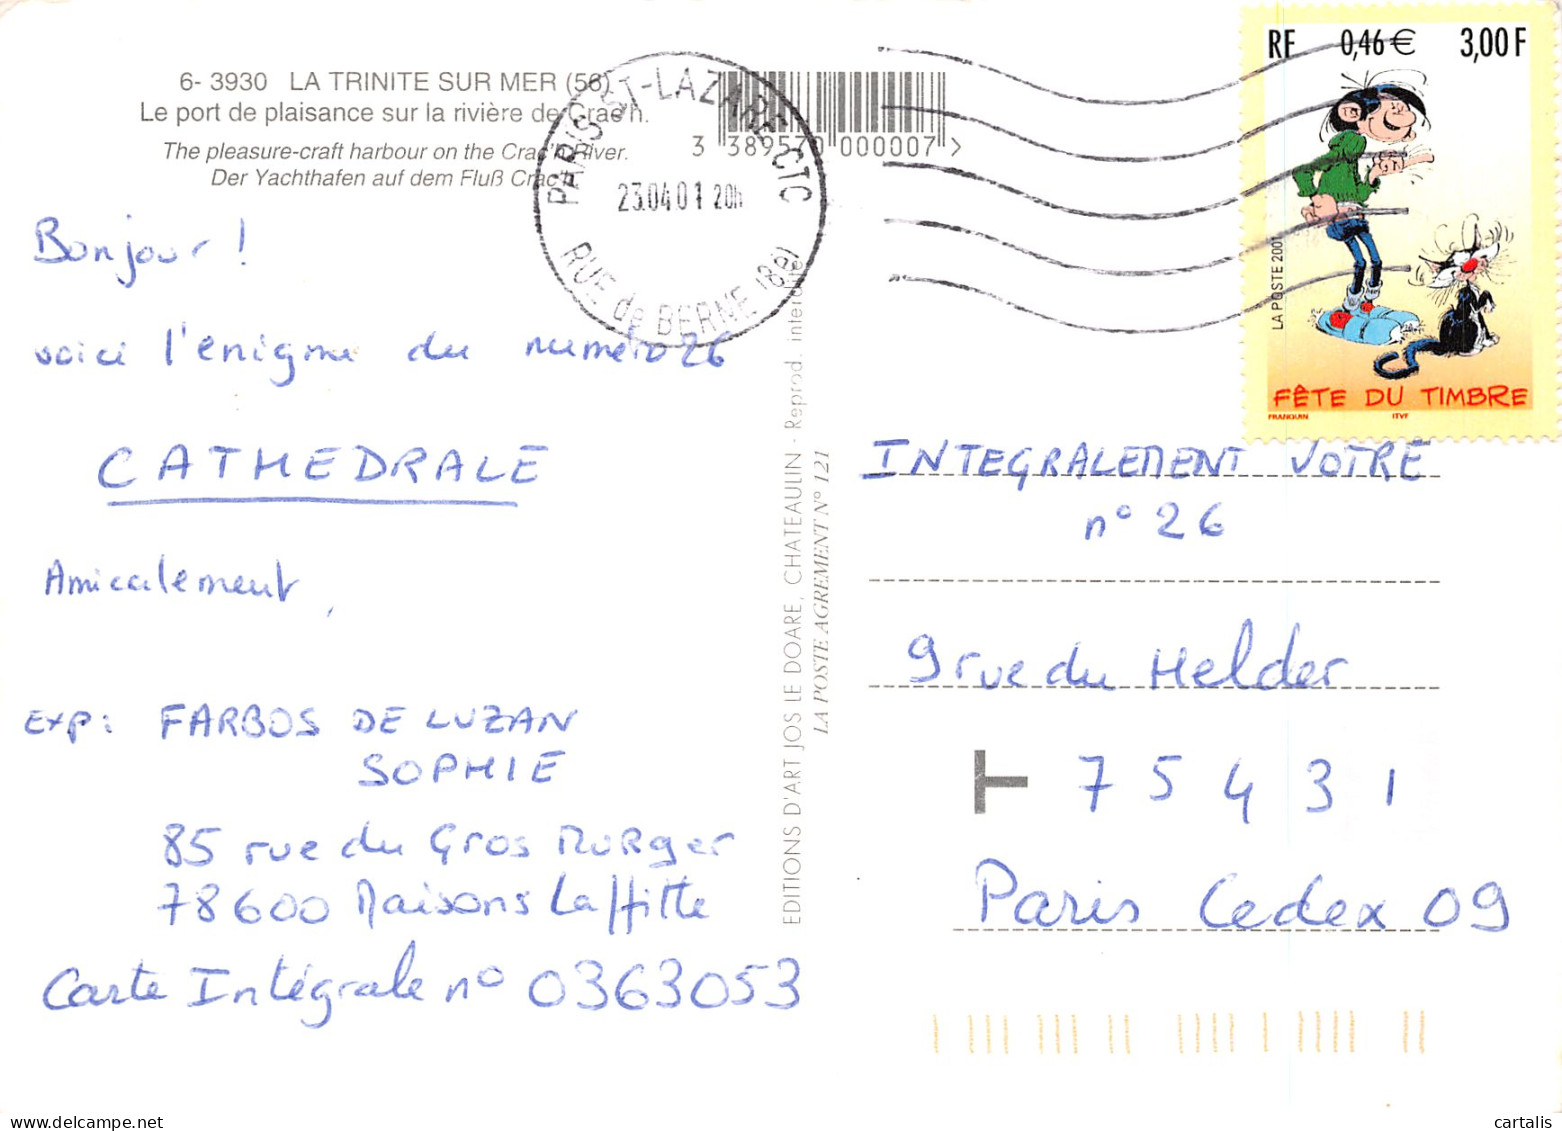 6- 3930 LA TRINITE SUR MER (56)
Le port de plaisance sur la rivière de Crac'h.
The pleasure-craft harbour on the Crac'h River.
Der Yachthafen auf dem Fluß Crac'h.
3 389570 000007 >
PARIS ST-LAZARE CTC
23.04 01 20h
RUE de BERNE (8e)
RF 0,46 € 3,00 F
LA POSTE 2001
FÊTE DU TIMBRE
FRANQUIN ITVF
Bonjour !
voici l'énigme du numéro 26
CATHEDRALE
Amicalement,
Exp : FARBOS DE LUZAN
SOPHIE
85 rue du Gros Murger
78600 Maisons Laffitte
Carte Intégrale n° 0363053
EDITIONS D'ART JOS LE DOARE, CHATEAULIN - Reprod. interdite
LA POSTE AGREMENT N° 121
INTEGRALEMENT VOTRE
n° 26
9 rue du Helder
T 75431
Paris Cedex 09
delcampe.net
cartalis